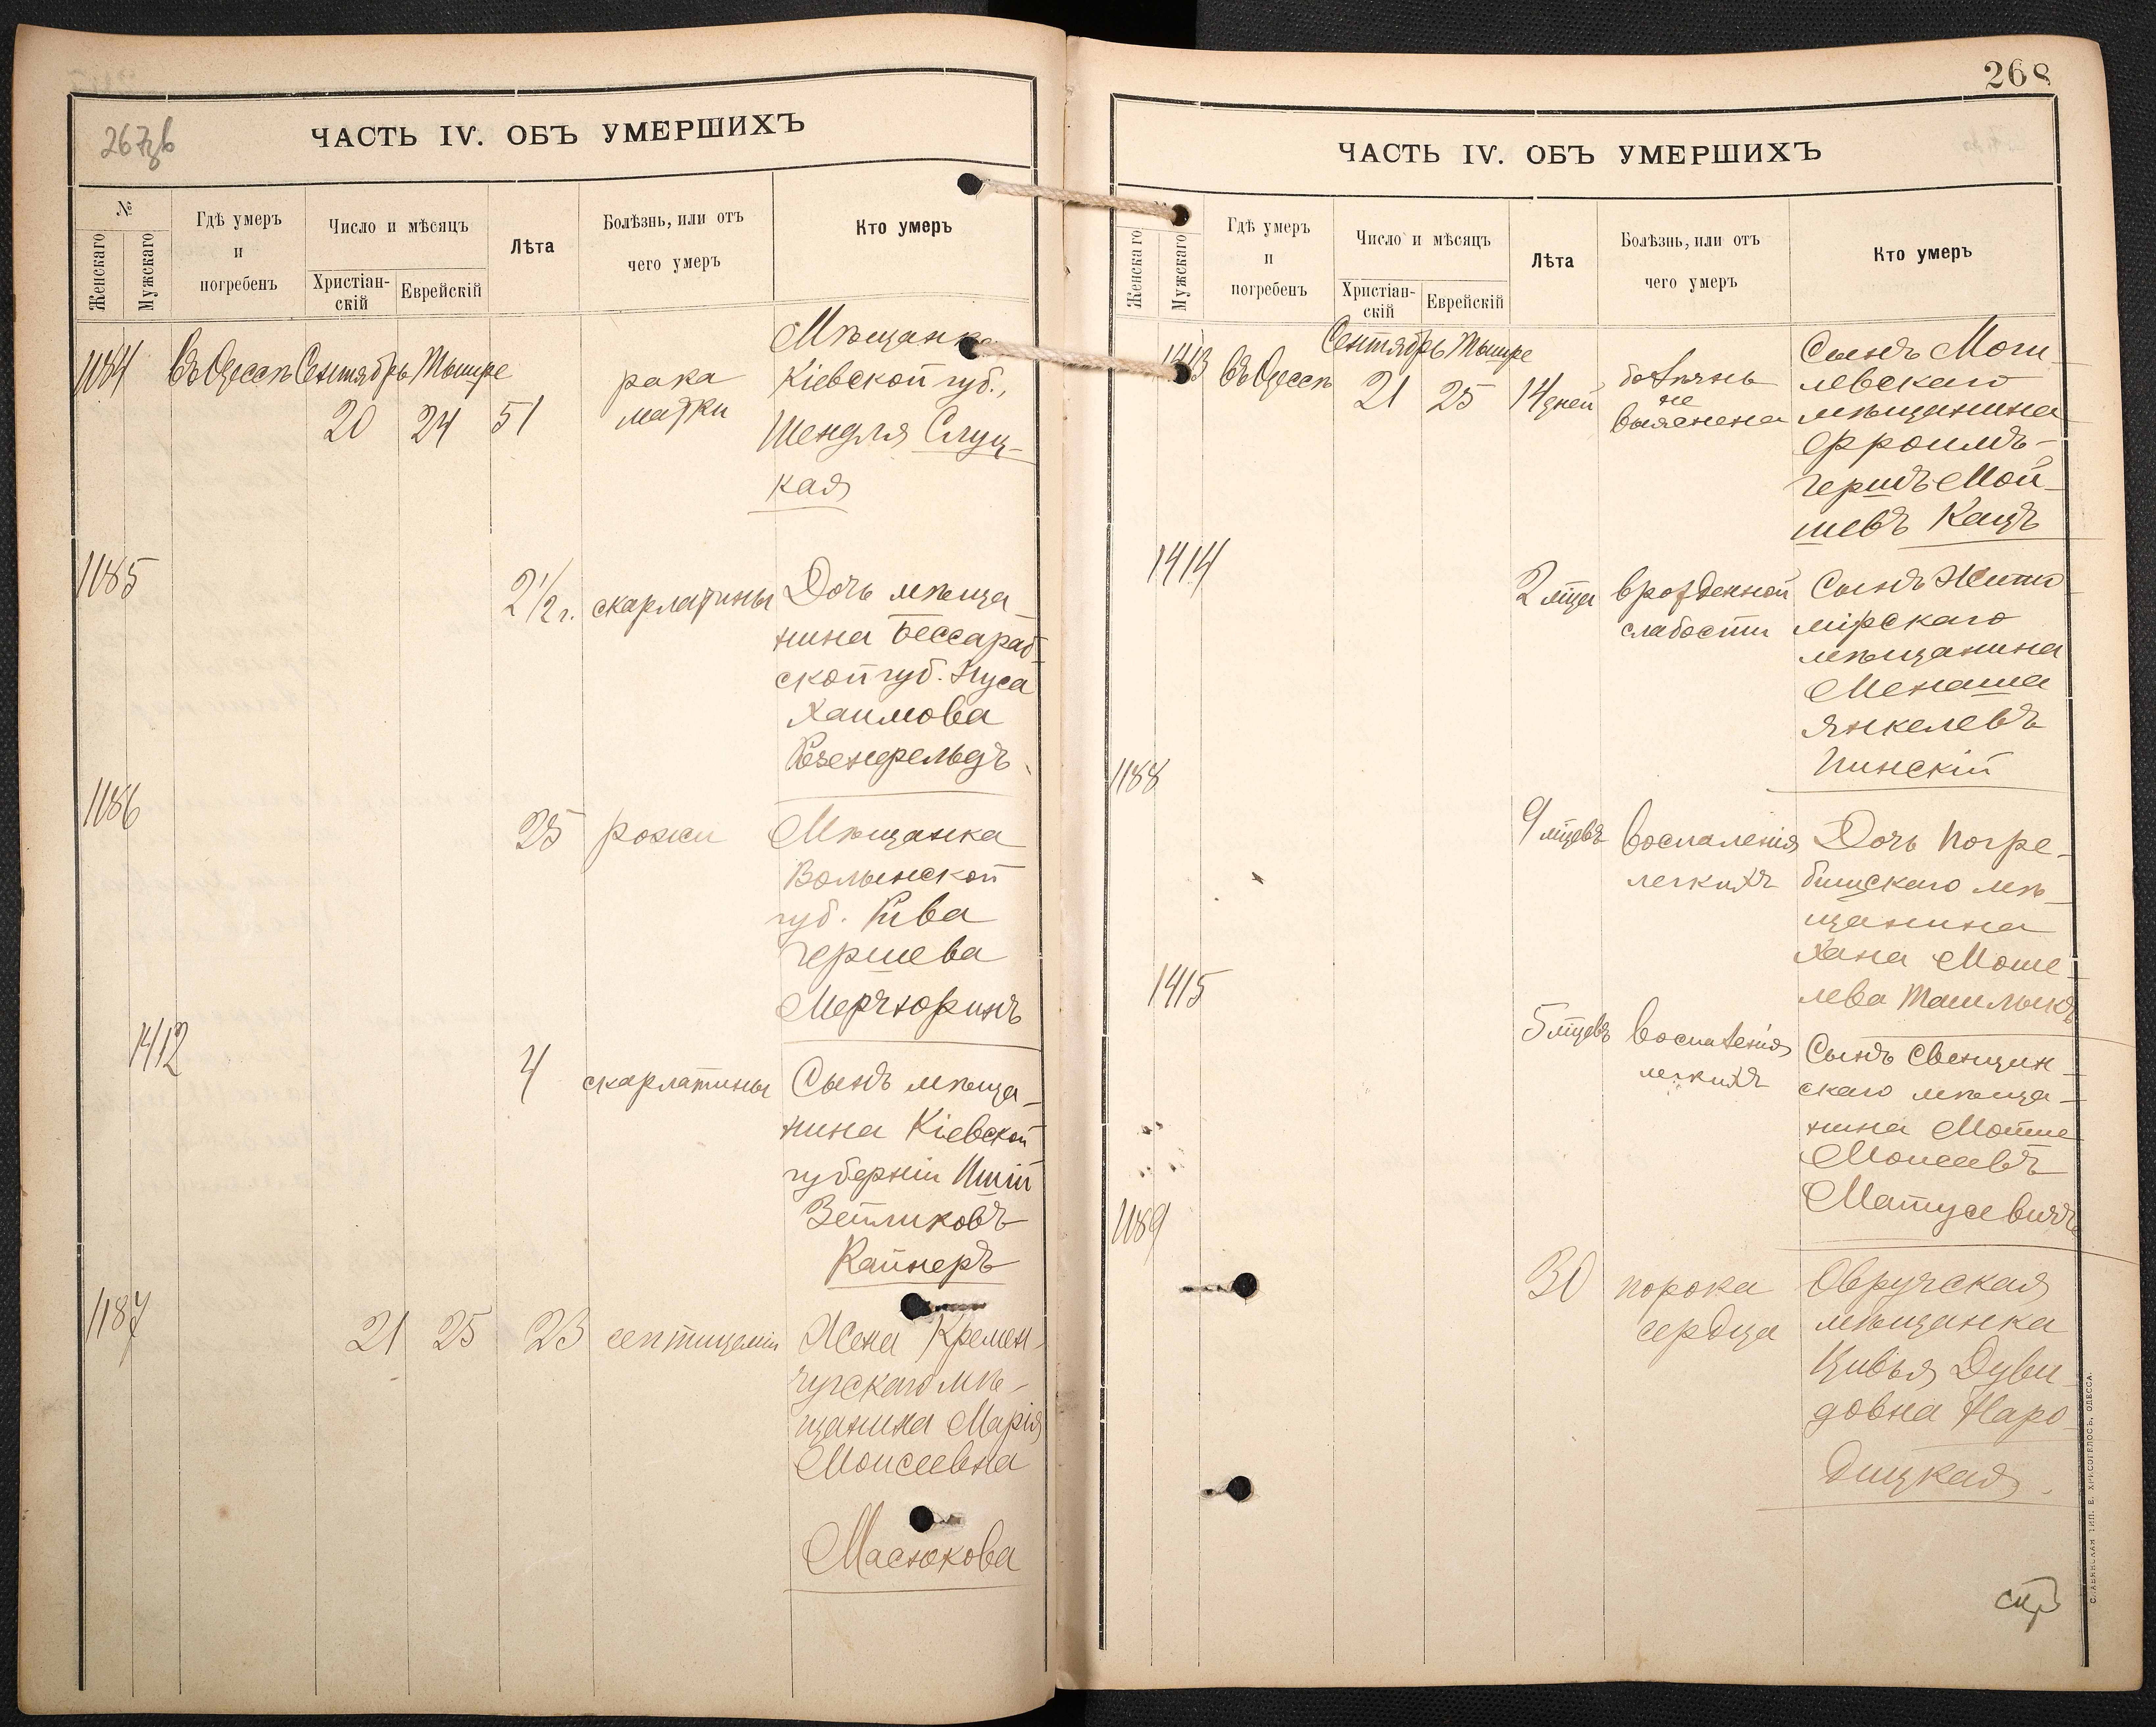 267зв
ЧАСТЬ IV. ОБЪ УМЕРШИХЪ
№
Женскаго
Мужскаго
Гдѣ умеръ
и
погребенъ
Число и мѣсяцъ
Христіан-
скій
Еврейскій
Лѣта
Болѣзнь, или отъ
чего умеръ
Кто умеръ
1184 Въ Одессѣ Сентябрь Тышре
20 24 51
рака
матки
Мѣщанка
Кіевской губ.,
Шендля Слуц-
кая
1185
2 1/2 г. скарлатины
Дочь мѣща-
нина Бессараб-
ской губ. Нуса
Хаимова
Розенфельдъ
1186
25 рожи
Мѣщанка
Волынской
губ. Рива
Гершева
1412
4 скарлатины
Сынъ мѣща-
нина Кіевской
губерніи
Зейликовъ
Кайнеръ
1187
21 25 23 септицеміи
Жена Кремен-
чугскаго мѣ-
щанина Марія
Моисеевна
Масюкова
268
ЧАСТЬ IV. ОБЪ УМЕРШИХЪ
Женскаго
Мужскаго
Гдѣ умеръ
и
погребенъ
Число и мѣсяцъ
Христіан-
скій
Еврейскій
Лѣта
Болѣзнь, или отъ
чего умеръ
Кто умеръ
1413 Въ Одессѣ Сентябрь Тышре
21 25 14 дней
болѣзнь
не
выяснена
Сынъ Моги-
левскаго
мѣщанина
Фроимъ-
Гершъ Мой-
шевъ Кацъ
1414
2 мѣца врожденной
слабости
Сынъ Жито
мірскаго
мѣщанина
Менаша
Янкелевъ
Пинскій
1188
9 мѣцевъ воспаленія
легкихъ
Дочь Погре-
бищскаго мѣ-
щанина
Хана Моше-
лева Ташлыкъ
1415
5 мѣцевъ воспаленія
легкихъ
Сынъ Свенцян-
скаго мѣща-
нина
Моисеевъ
Матусевичъ
1189
30 порока
сердца
Овручская
мѣщанка
Цивья Дуви-
довна Наро-
дицкая.
СЛАВЯНСКАЯ ТИП. Е. ХРИСОГЕЛОСЪ, ОДЕССА.